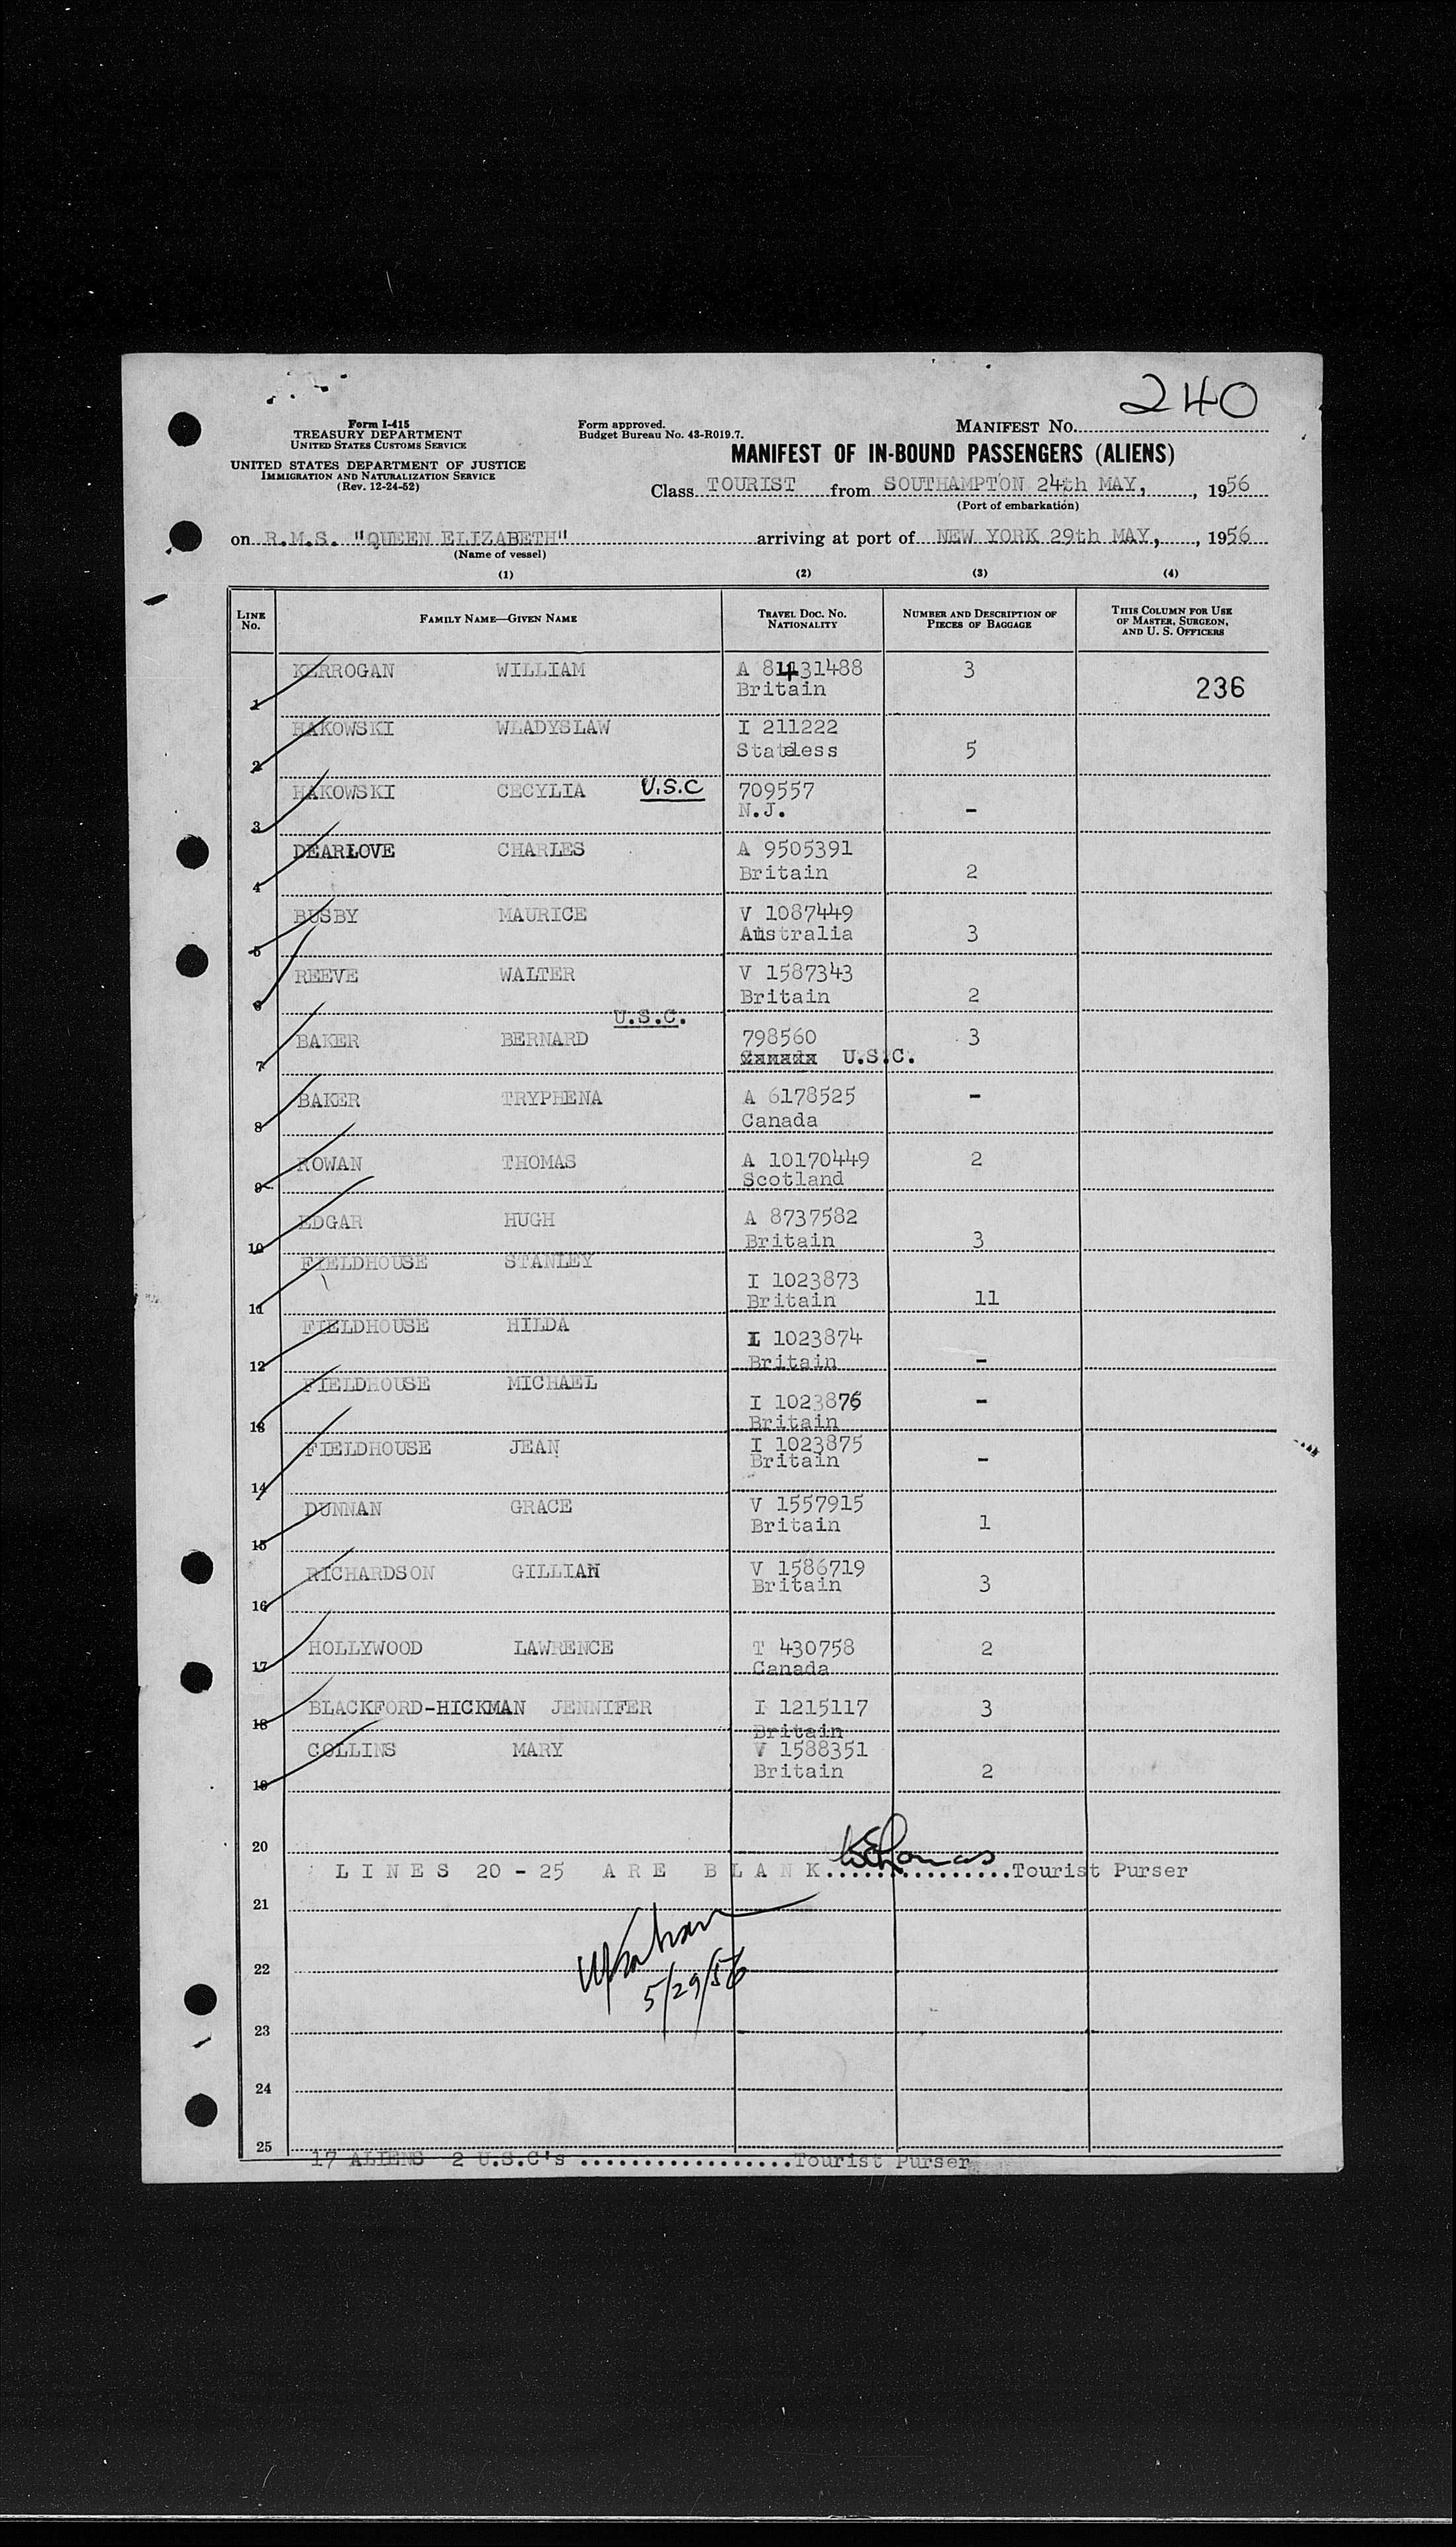 240
Form I-415
TREASURY DEPARTMENT
UNITED STATES CUSTOMS SERVICE
UNITED STATES DEPARTMENT OF JUSTICE
IMMIGRATION AND NATURALIZATION SERVICE
(Rev. 12-24-52)
Form approved.
Budget Bureau No. 43-R019.7.
MANIFEST No.
MANIFEST OF IN-BOUND PASSENGERS (ALIENS)
Class TOURIST from SOUTHAMPTON 24th MAY, , 1956
(Port of embarkation)
on R.M.S. "QUEEN ELIZABETH" arriving at port of NEW YORK 29th MAY, , 1956
(Name of vessel)
(1) (2) (3) (4)
LINE No. FAMILY NAME—GIVEN NAME TRAVEL DOC. No. NATIONALITY NUMBER AND DESCRIPTION OF PIECES OF BAGGAGE THIS COLUMN FOR USE OF MASTER, SURGEON, AND U. S. OFFICERS
1 KERROGAN WILLIAM A 81431488 3
Britain 236
2 HAKOWSKI WLADYSLAW I 211222
Stateless 5
3 HAKOWSKI CECYLIA U.S.C 709557
N.J. -
4 DEARLOVE CHARLES A 9505391
Britain 2
5 BUSBY MAURICE V 1087449
Australia 3
6 REEVE WALTER V 1587343
Britain 2
U.S.C.
7 BAKER BERNARD 798560 3
Canada U.S.C.
8 BAKER TRYPHENA A 6178525 -
Canada
9 ROWAN THOMAS A 10170449 2
Scotland
10 EDGAR HUGH A 8737582
Britain 3
11 FIELDHOUSE STANLEY
I 1023873
Britain 11
12 FIELDHOUSE HILDA
I 1023874
Britain -
13 FIELDHOUSE MICHAEL
I 1023876 -
Britain
14 FIELDHOUSE JEAN I 1023875
Britain -
15 DUNNAN GRACE V 1557915
Britain 1
16 RICHARDSON GILLIAN V 1586719
Britain 3
17 HOLLYWOOD LAWRENCE T 430758 2
Canada
18 BLACKFORD-HICKMAN JENNIFER I 1215117 3
Britain
19 COLLINS MARY V 1588351
Britain 2
20
LINES 20 - 25 ARE BLANK.................Tourist Purser
21
22
5/29/56
23
24
25
17 ALIENS 2 U.S.C's .................Tourist Purser